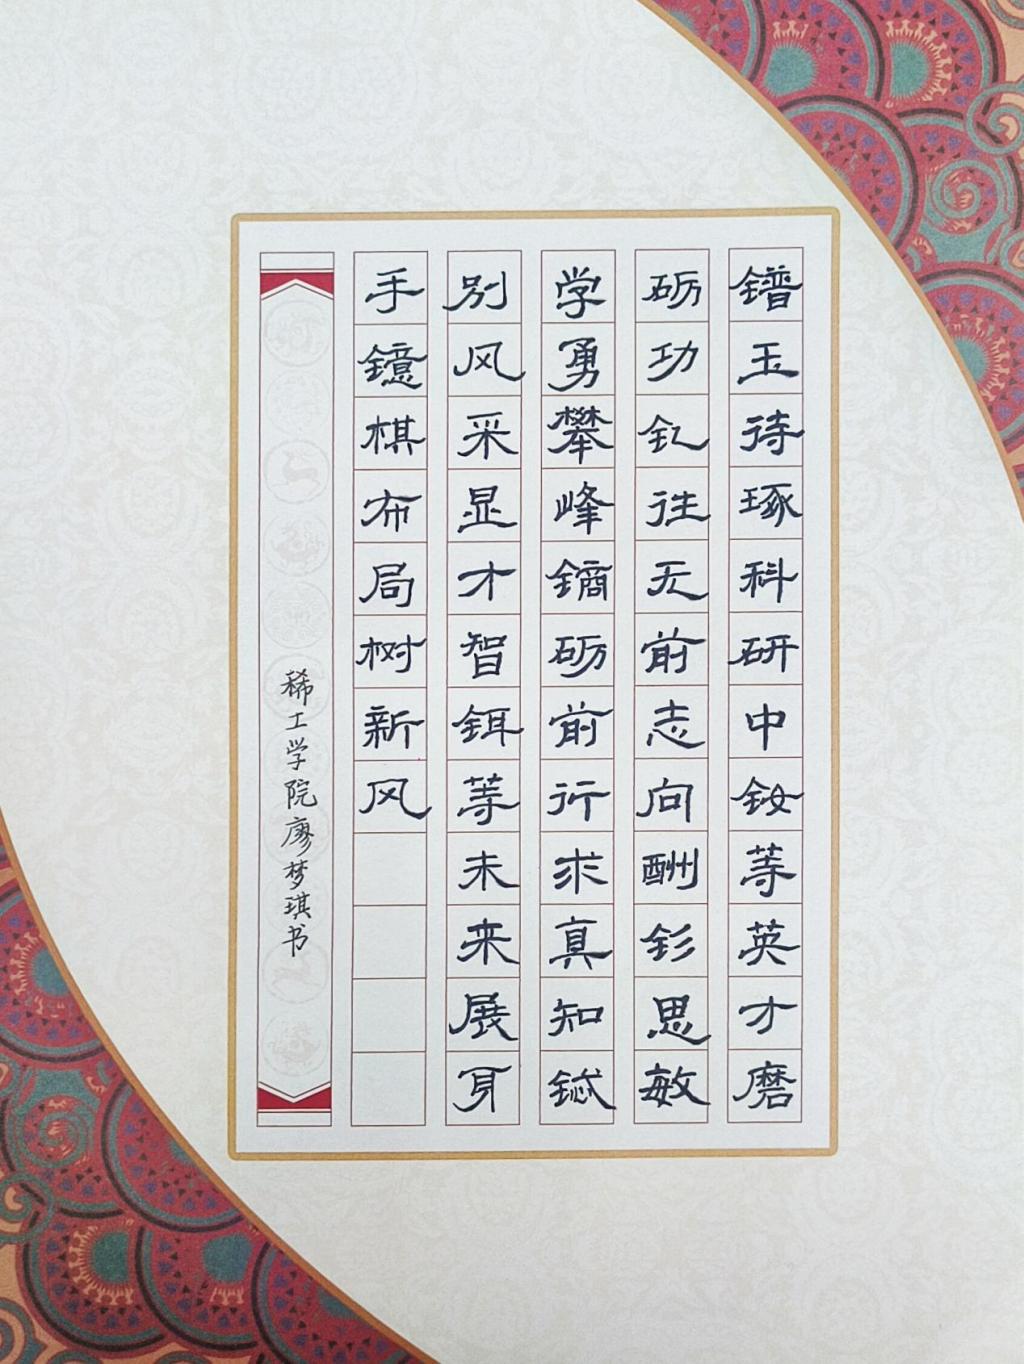 镨玉待琢科研中钕等英才磨
砺功钇往无前志向酬钐思敏
学勇攀峰镝砺前行求真知铽
别风采显才智铒等未来展身
手镱棋布局树新风
稀工学院廖梦琪书